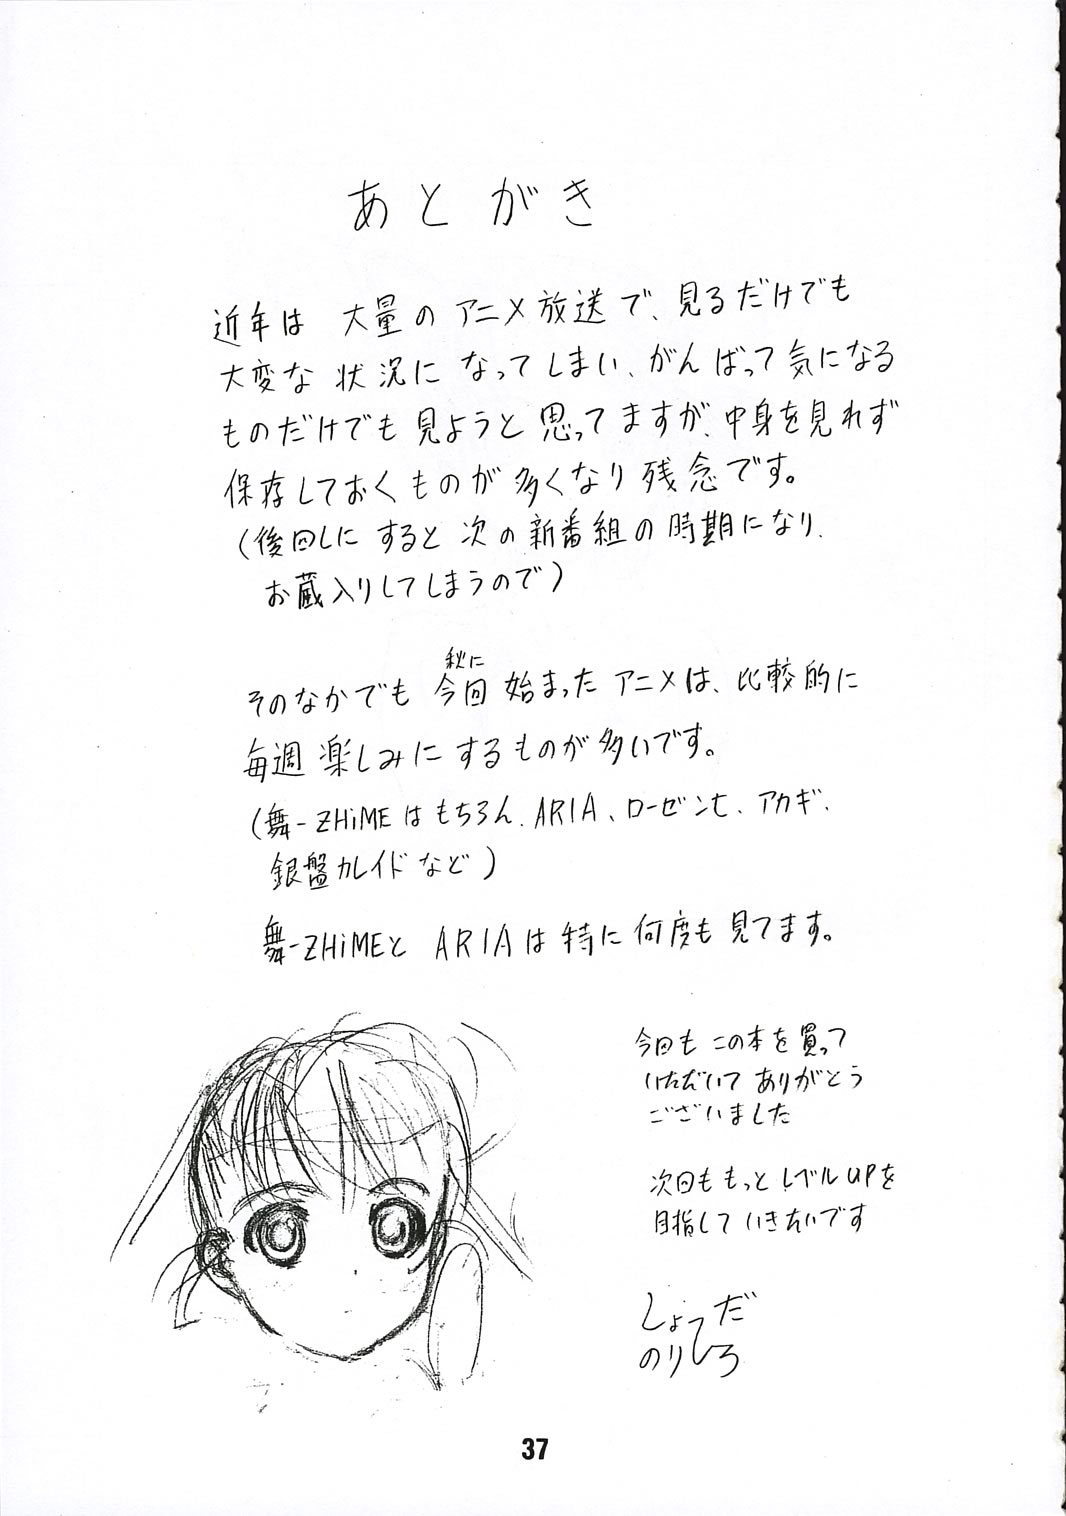 あとがき
近年は 大量のアニメ放送で、見るだけでも
大変な 状況に なってしまい、がんばって気になる
ものだけでも 見ようと 思ってますが、中身を見れず
保存しておくものが 多くなり 残念です。
(後回しに すると 次の新番組の時期になり、
お蔵入りしてしまうので)
秋に
そのなかでも 今回 始まった アニメは、比較的に
毎週 楽しみに するものが 多いです。
(舞-ZHiMEはもちろん、ARIA、ローゼンと、アカギ、
銀盤カレイド など)
舞-ZHiMEと ARIAは 特に 何度も 見てます。
今回も この本を 買って
いただいて ありがとう
ございました
次回も もっと レベルUPを
目指して いきたいです
しょうだ
のりひろ
37